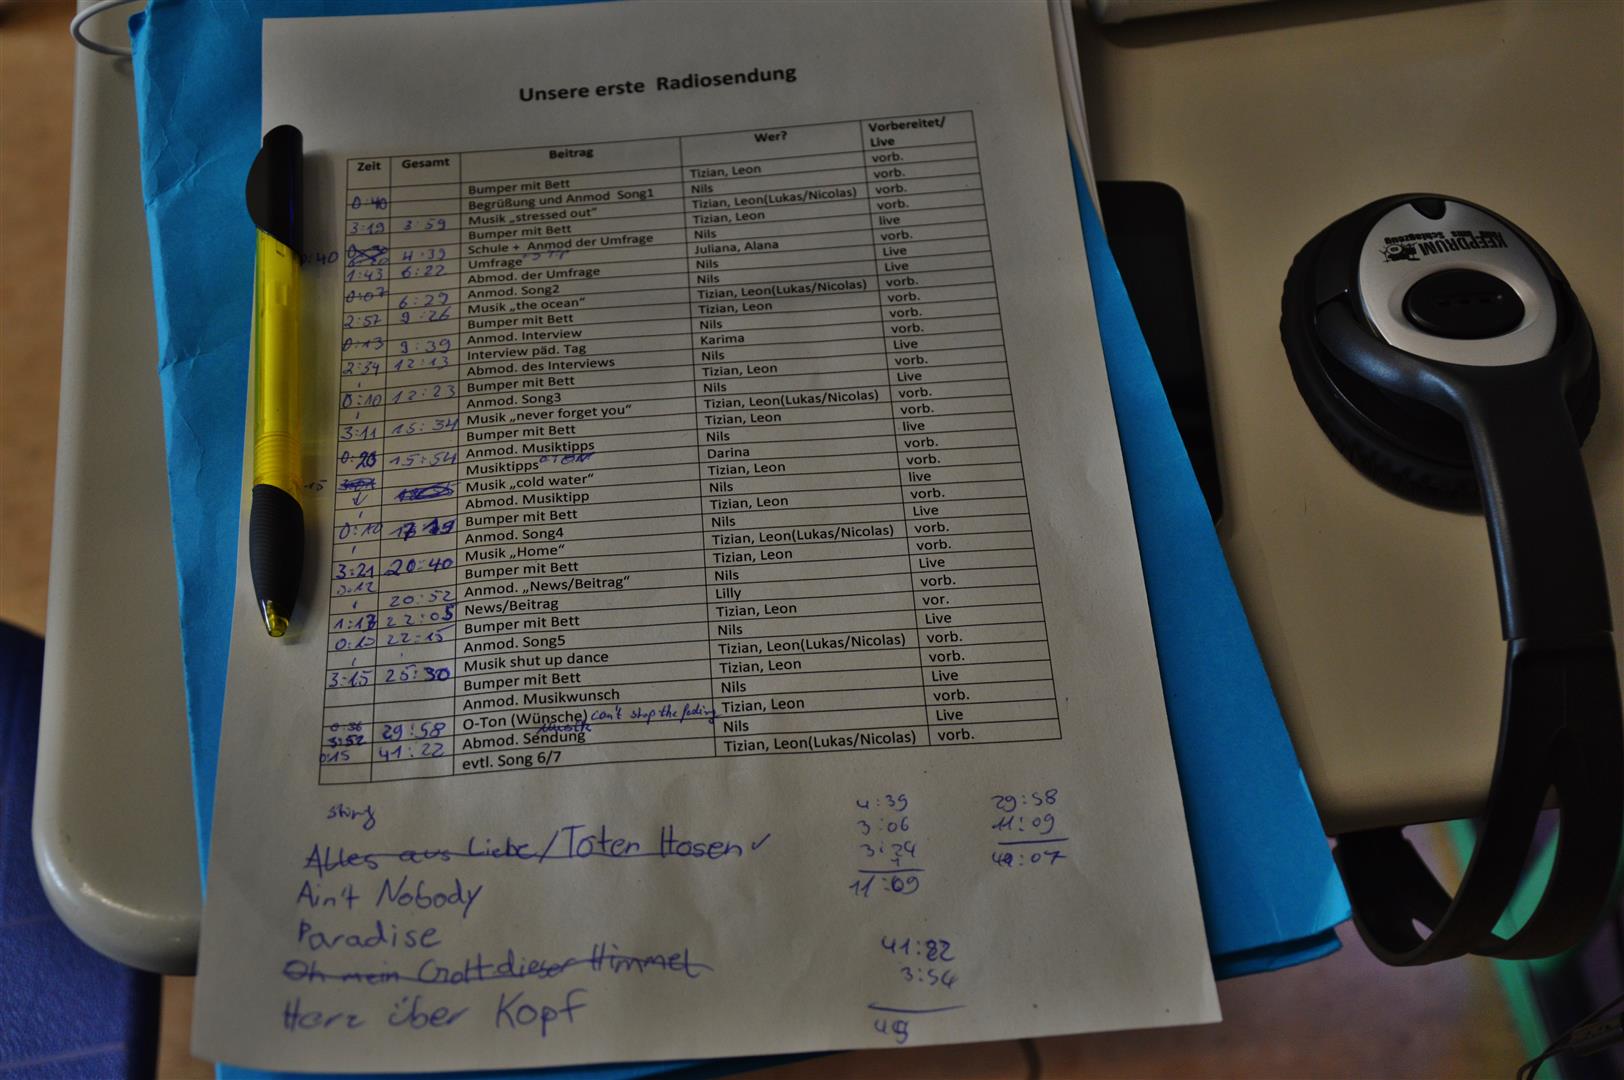 Unsere erste Radiosendung
Zeit Gesamt Beitrag Wer? Vorbereitet/
Live
Bumper mit Bett Tizian, Leon vorb.
0:40 Begrüßung und Anmod Song1 Nils vorb.
3:19 3:59 Musik „stressed out“ Tizian, Leon(Lukas/Nicolas) vorb.
Bumper mit Bett Tizian, Leon vorb.
0:40 4:39 Schule + Anmod der Umfrage Nils live
1:43 6:22 Umfrage Juliana, Alana vorb.
0:07 6:29 Abmod. der Umfrage Nils Live
Anmod. Song2 Nils Live
2:57 9:26 Musik „the ocean“ Tizian, Leon(Lukas/Nicolas) vorb.
Bumper mit Bett Tizian, Leon vorb.
0:13 9:39 Anmod. Interview Nils vorb.
2:34 12:13 Interview päd. Tag Karima vorb.
Abmod. des Interviews Nils Live
0:10 12:23 Bumper mit Bett Tizian, Leon vorb.
Anmod. Song3 Nils Live
3:11 15:34 Musik „never forget you“ Tizian, Leon(Lukas/Nicolas) vorb.
Bumper mit Bett Tizian, Leon vorb.
0:20 15:54 Anmod. Musiktipps Nils live
Musiktipps O-TON Darina vorb.
Musik „cold water“ Tizian, Leon vorb.
Abmod. Musiktipp Nils live
0:10 Bumper mit Bett Tizian, Leon vorb.
Anmod. Song4 Nils Live
3:21 20:40 Musik „Home“ Tizian, Leon(Lukas/Nicolas) vorb.
Bumper mit Bett Tizian, Leon vorb.
20:52 Anmod. „News/Beitrag“ Nils Live
1:13 22:05 News/Beitrag Lilly vorb.
22:15 Bumper mit Bett Tizian, Leon vor.
Anmod. Song5 Nils Live
3:15 25:30 Musik shut up dance Tizian, Leon(Lukas/Nicolas) vorb.
Bumper mit Bett Tizian, Leon vorb.
Anmod. Musikwunsch Nils Live
0:36 3:52 29:58 O-Ton (Wünsche) can't stop the feeling Tizian, Leon vorb.
0:15 41:22 Abmod. Sendung Nils Live
evtl. Song 6/7 Tizian, Leon(Lukas/Nicolas) vorb.
Alles aus Liebe/Toten Hosen ✓
Ain't Nobody
Paradise
Oh mein Gott dieser Himmel
Herz über Kopf
4:39
3:06
3:24
11:09
29:58
11:09
41:07
41:22
3:54
KEEPDRUM